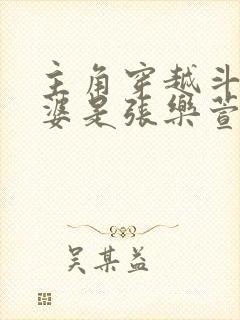 主角穿越斗
婆是張樂萱
吴某益